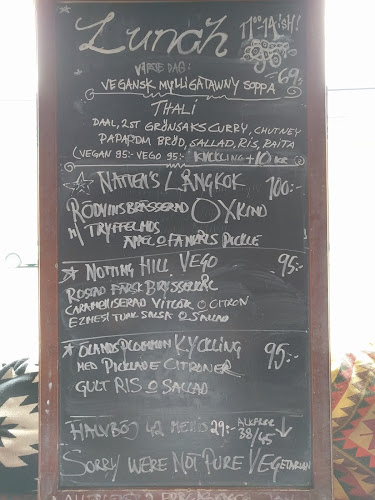 Lunch 11⁰⁰-14 ISH!
VARJE DAG:
VEGANSK MYLLIGATAWNY SOPPA 69:-
THALI
DAAL, 2ST GRÖNSAKSCURRY, CHUTNEY
PAPADAM BRÖD, SALLAD, RIS, RAITA
(VEGAN 95:- VEGO 95:- KYCKLING +10 KR
NATTENS LÅNGKOK 100:-
RÖDVINSBRÄSSERAD OXKIND
M TRYFFELMOS
ÄPPEL O PICKLE
NOTTING HILL VEGO 95:-
ROSTAD FÄRSK BRYSSELKÅL
CARAMELLISERAD VITLÖK O CITRON
EZMESI TURK SALSA O SALLAD
ÖLANDS KYCKLING 95:-
MED PICKLADE CITRONER
GULT RIS O SALLAD
29:- ALKFRI 38/45
SORRY WERE NOT PURE VEGETARIAN